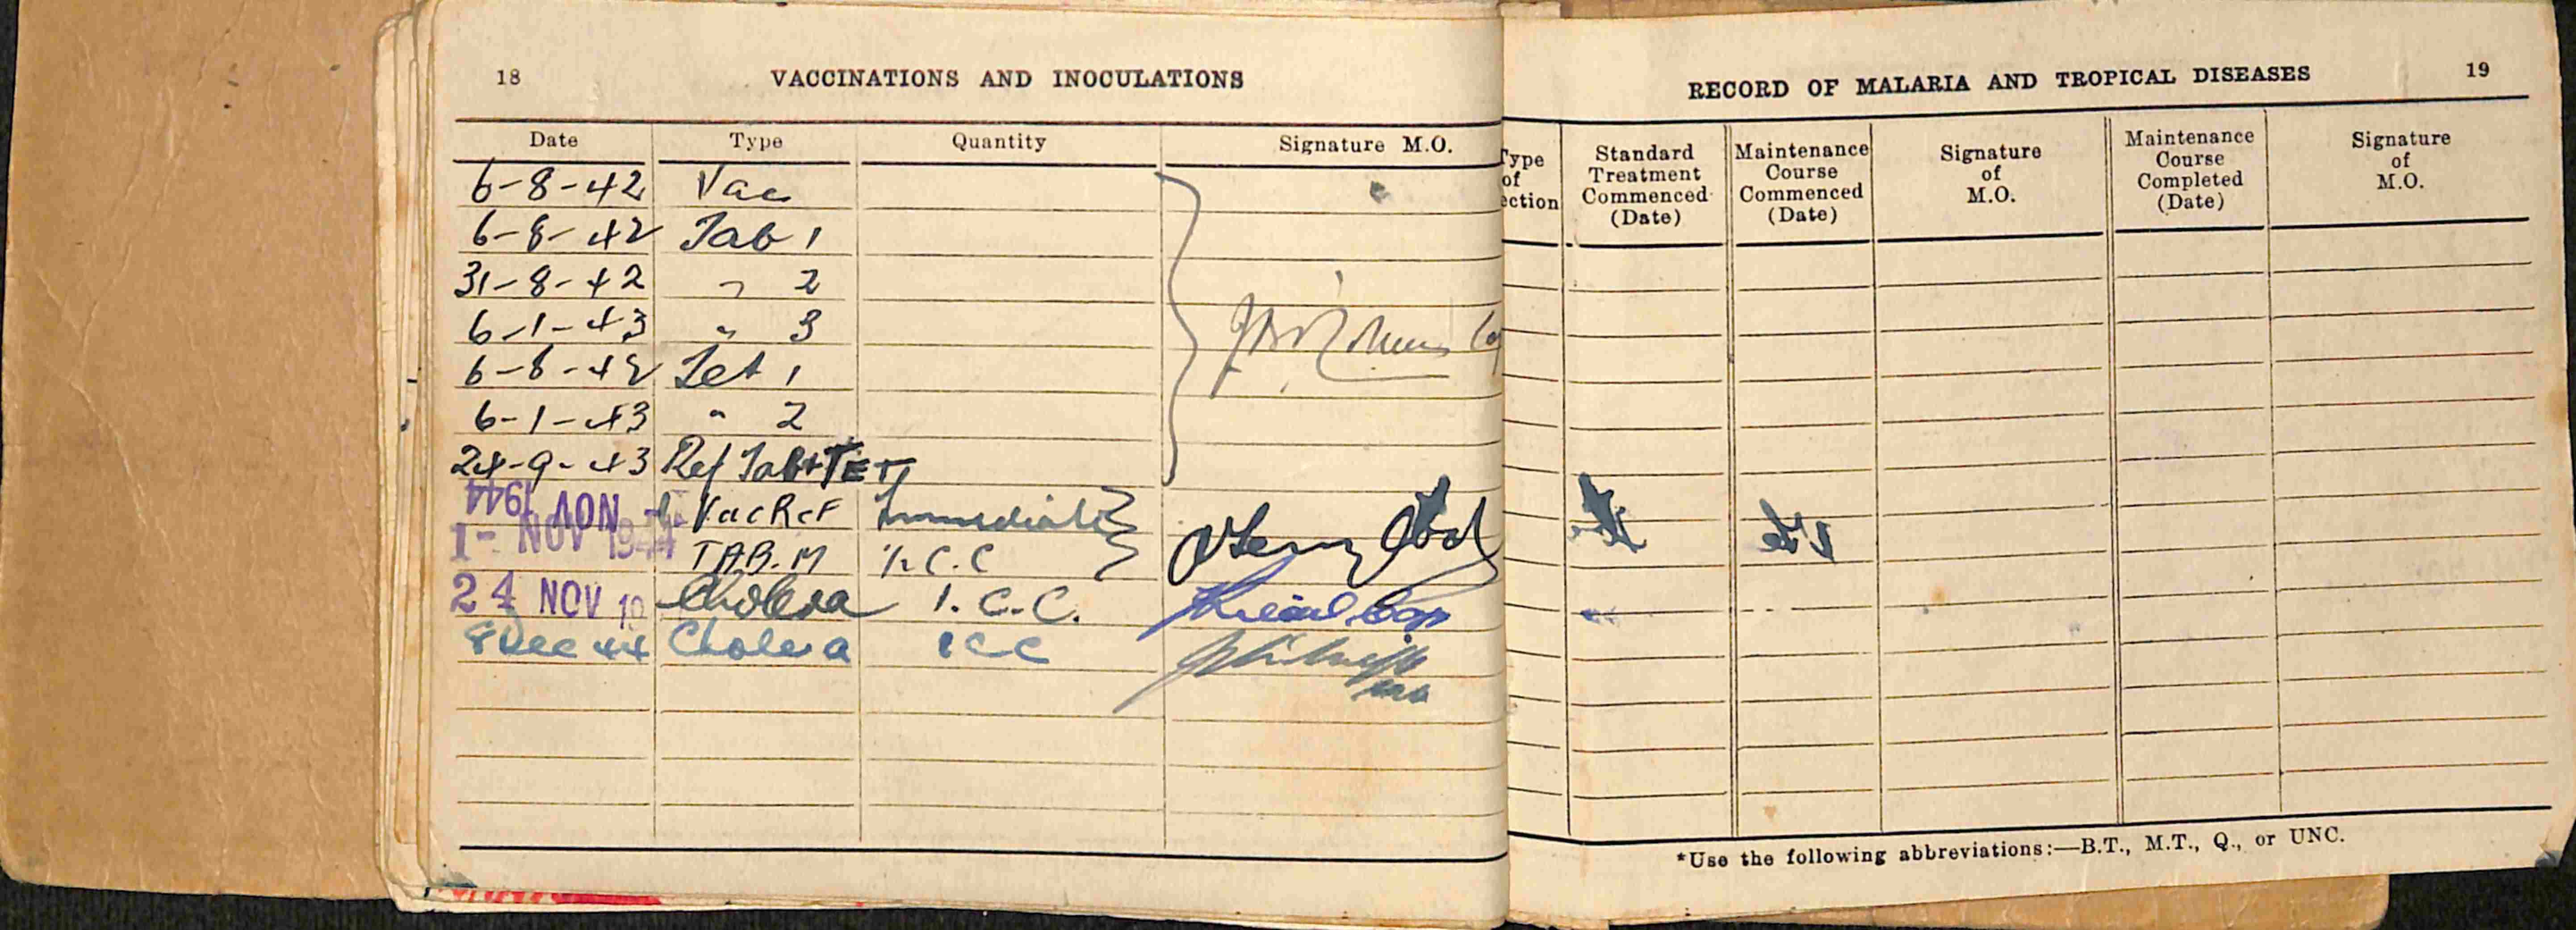 18 VACCINATIONS AND INOCULATIONS
Date Type Quantity Signature M.O.
6-8-42 Vac
6-8-42 Tab 1
31-8-42 " 2
6-1-43 " 3
6-8-42 Tet 1
6-1-43 " 2
24-9-43 Ref Tab+TET
1- NOV 1944 Vac Ref Immediate
1- NOV 1944 T.A.B.M ½ C.C
24 NOV 19 Cholera 1.C.C.
8 Dec 44 Cholera 1CC
RECORD OF MALARIA AND TROPICAL DISEASES 19
Type
of
ection
Standard
Treatment
Commenced
(Date)
Maintenance
Course
Commenced
(Date)
Signature
of
M.O.
Maintenance
Course
Completed
(Date)
Signature
of
M.O.
*Use the following abbreviations:—B.T., M.T., Q., or UNC.